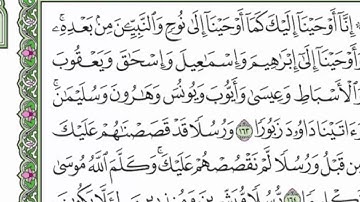 إِنَّآ أَوْحَيْنَآ إِلَيْكَ كَمَآ أَوْحَيْنَآ إِلَىٰ نُوحٍ وَٱلنَّبِيِّـۧنَ مِنۢ بَعْدِهِۦ ۚ
وَأَوْحَيْنَآ إِلَىٰٓ إِبْرَٰهِيمَ وَإِسْمَـٰعِيلَ وَإِسْحَـٰقَ وَيَعْقُوبَ
وَٱلْأَسْبَاطِ وَعِيسَىٰ وَأَيُّوبَ وَيُونُسَ وَهَـٰرُونَ وَسُلَيْمَـٰنَ ۚ
وَءَاتَيْنَا دَاوُۥدَ زَبُورًا ١٦٣ وَرُسُلًا قَدْ قَصَصْنَـٰهُمْ عَلَيْكَ
مِن قَبْلُ وَرُسُلًا لَّمْ نَقْصُصْهُمْ عَلَيْكَ ۚ وَكَلَّمَ ٱللَّهُ مُوسَىٰ
تَكْلِيمًا ١٦٤ رُّسُلًا مُّبَشِّرِينَ وَمُنذِرِينَ لِئَلَّا يَكُونَ